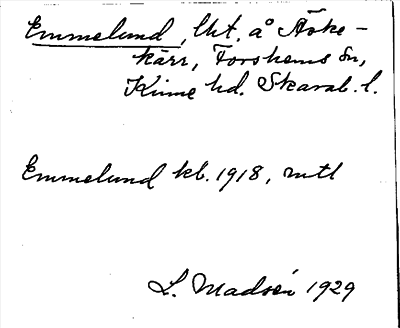 Emmelund, lht. å Aske-
kärr, Forshems sn,
Kinne hd. Skarab. l.
Emmelund kb. 1918, mtl
L. Madsén 1929